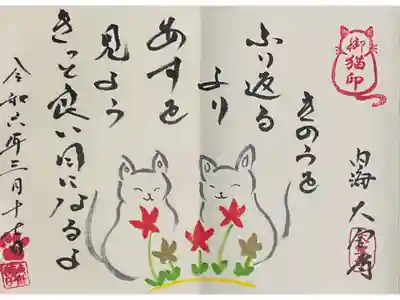 御猫印
きのうを
ふり返る
より
あすを
見よう
きっと良い日になるよ
内海
令和六年三月十七日